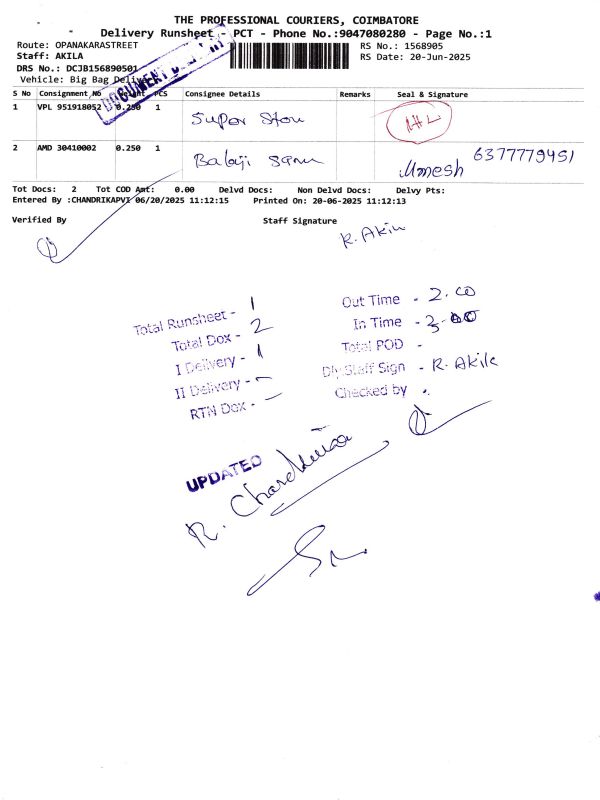 THE PROFESSIONAL COURIERS, COIMBATORE
Delivery Runsheet - PCT - Phone No.:9047080280 - Page No.:1
Route: OPANAKARASTREET RS No.: 1568905
Staff: AKILA RS Date: 20-Jun-2025
DRS No.: DCJB156890501
Vehicle: Big Bag Delivery
DOCUMENT
S No Consignment No Weight PCS Consignee Details Remarks Seal & Signature
1 VPL 951918052 0.250 1 Super Stou
2 AMD 30410002 0.250 1 Balaji Umesh 6377779451
Tot Docs: 2 Tot COD Amt: 0.00 Delvd Docs: Non Delvd Docs: Delvy Pts:
Entered By :CHANDRIKAPVI 06/20/2025 11:12:15 Printed On: 20-06-2025 11:12:13
Verified By Staff Signature
R. Akila
Total Runsheet - 1
Total Dox - 2
I Delivery - 1
II Delivery -
RTN Dox -
Out Time - 2.00
In Time - 3.00
Total POD -
Dly Staff Sign - R. Akila
Checked by -
UPDATED